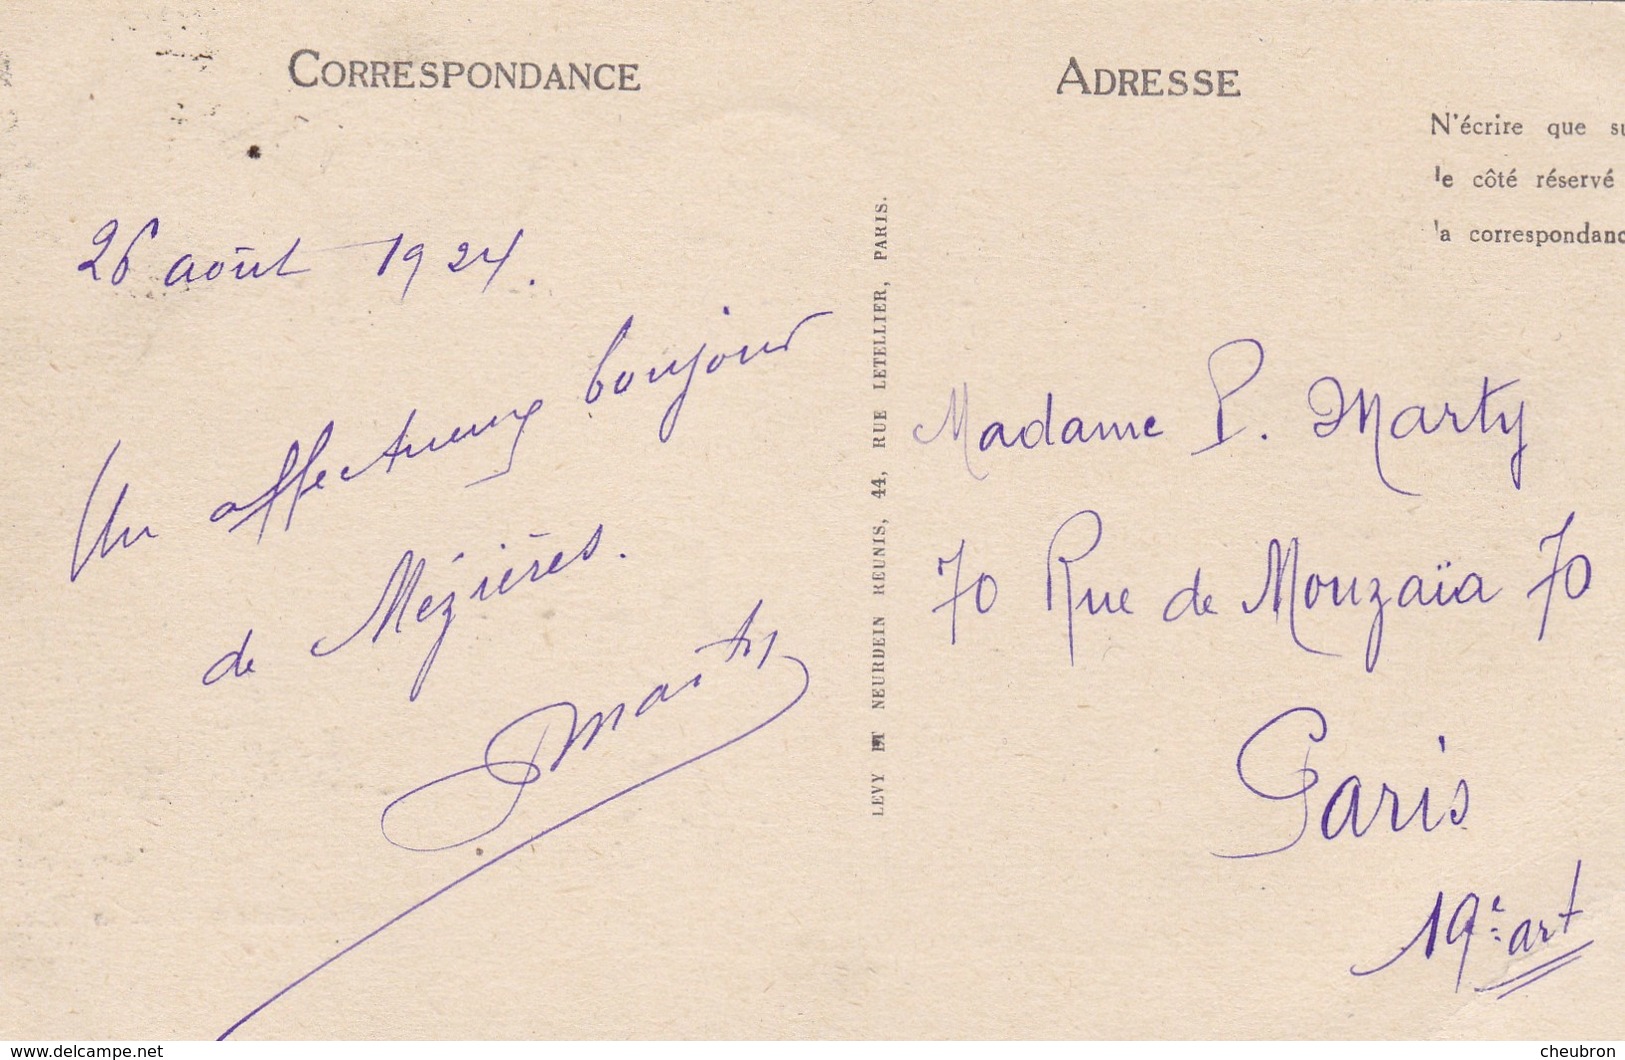 CORRESPONDANCE
26 août 1924.
Un affectueux bonjour
de Mézières.
PMarty
LEVY ET NEURDEIN REUNIS, 44, RUE LETELLIER, PARIS.
ADRESSE
N'écrire que su
le côté réservé
la correspondanc
Madame P. Marty
70 Rue de Mouzaïa 70
Paris
19e art
www.delcampe.net
cheubron